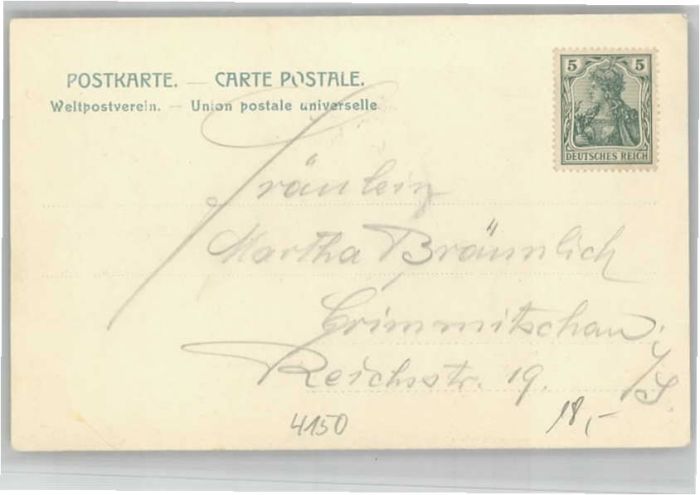 POSTKARTE. — CARTE POSTALE.
Weltpostverein. — Union postale universelle.
5 5
DEUTSCHES REICH
Fräulein
Martha Bräunlich
Crimmitschau i/S.
Reichsstr. 19.
4150
18,-